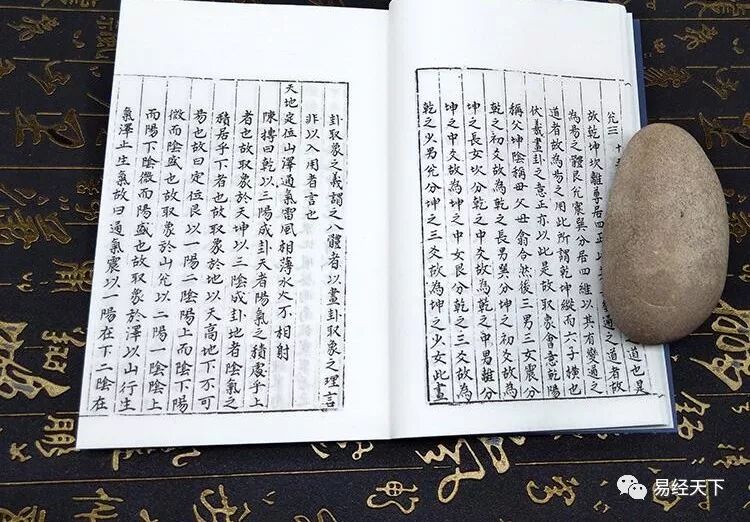 兌三
之道也是
故乾坤坎離尊居四正以
之道者故
為易之體艮兌震巽分居四維以其有變通之
道者故為易之用此所謂乾坤縱而六子橫也
伏羲畫卦之意正亦以此是故取象會意乾陽
稱父坤陰稱母父母翕合然後三男三女震分
乾之初爻故為乾之長男巽分坤之初爻故為
坤之長女坎分乾之中爻故為乾之中男離分
坤之中爻故為坤之中女艮分乾之三爻故為
乾之少男兌分坤之三爻故為坤之少女此畫
卦取象之義謂之八體者以畫卦取象之理言
非以入用者言也
天地定位山澤通氣雷風相薄水火不相射
陳摶曰乾以三陽成卦天者陽氣之積處乎上
者也故取象於天坤以三陰成卦地者陰氣之
積居乎下者也故取象於地以天高地下不可
易也故曰定位艮以一陽二陰陽上而陰下陽
微而陰盛也故取象於山兌以二陽一陰陰上
而陽下陰微而陽盛也故取象於澤以山行生
氣澤止生氣故曰通氣震以一陽在下二陰在
易经天下